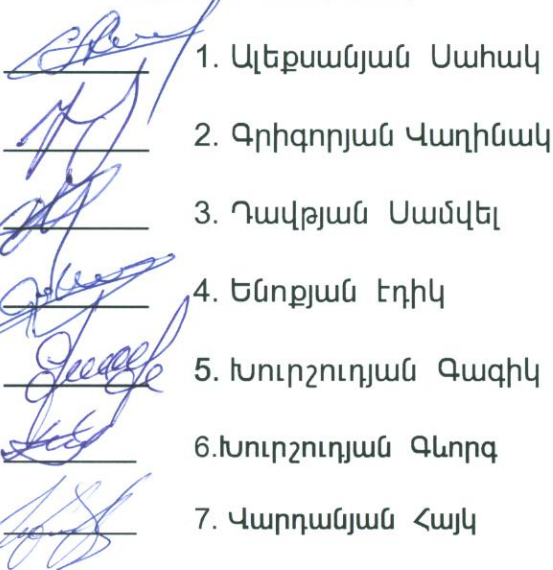 1. Ալեքսանյան Սահակ
2. Գրիգորյան Վաղինակ
3. Դավթյան Սամվել
4. Ենոքյան Էդիկ
5. Խուրշուդյան Գագիկ
6.Խուրշուդյան Գևորգ
7. Վարդանյան Հայկ